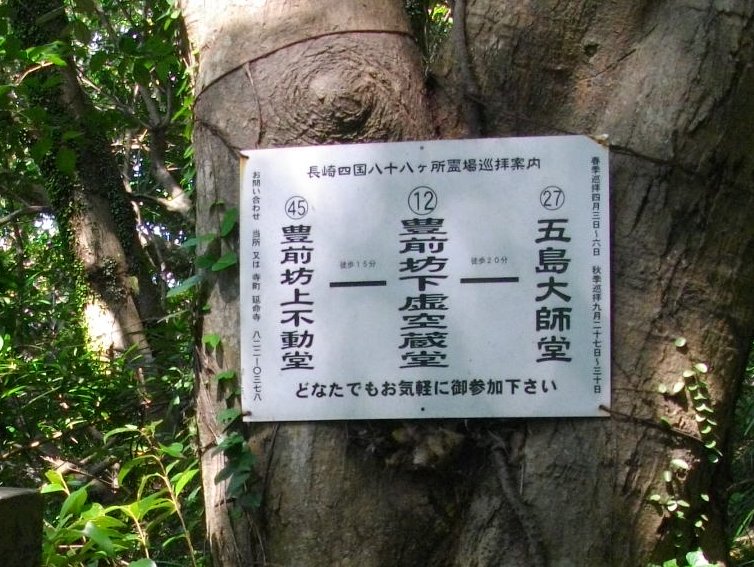 長崎四国八十八ヶ所霊場巡拝案内
春季巡拝四月三日～六日 秋季巡拝九月二十七日～三十日
㉗
五島大師堂
徒歩20分
⑫
豊前坊下虚空蔵堂
徒歩15分
㊺
豊前坊上不動堂
お問い合わせ 当所 又は 寺町 延命寺 八二二―〇三七八
どなたでもお気軽に御参加下さい